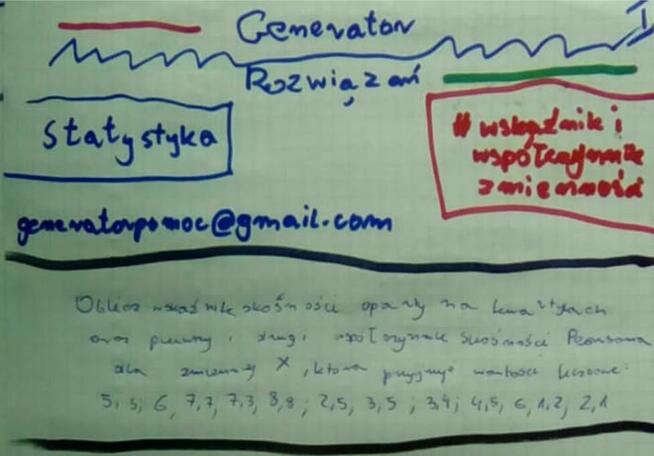 Generator
Rozwiązań
Statystyka
# wskaźnik i
współczynnik
zmienności
generatorpomoc@gmail.com
Oblicz wskaźnik skośności oparty na kwartylach
oraz pierwszy i drugi współczynnik skośności Pearsona
dla zmiennej X, która przyjmuje wartości liczbowe:
6, 7,7, 7,3, 8,8; 2,5, 3,5; 3,4; 4,5, 6, 1,2, 2,1